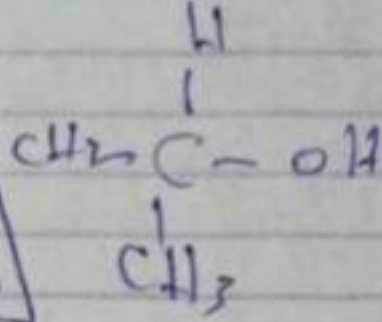 H
|
CH₂ – C – OH
|
CH₃